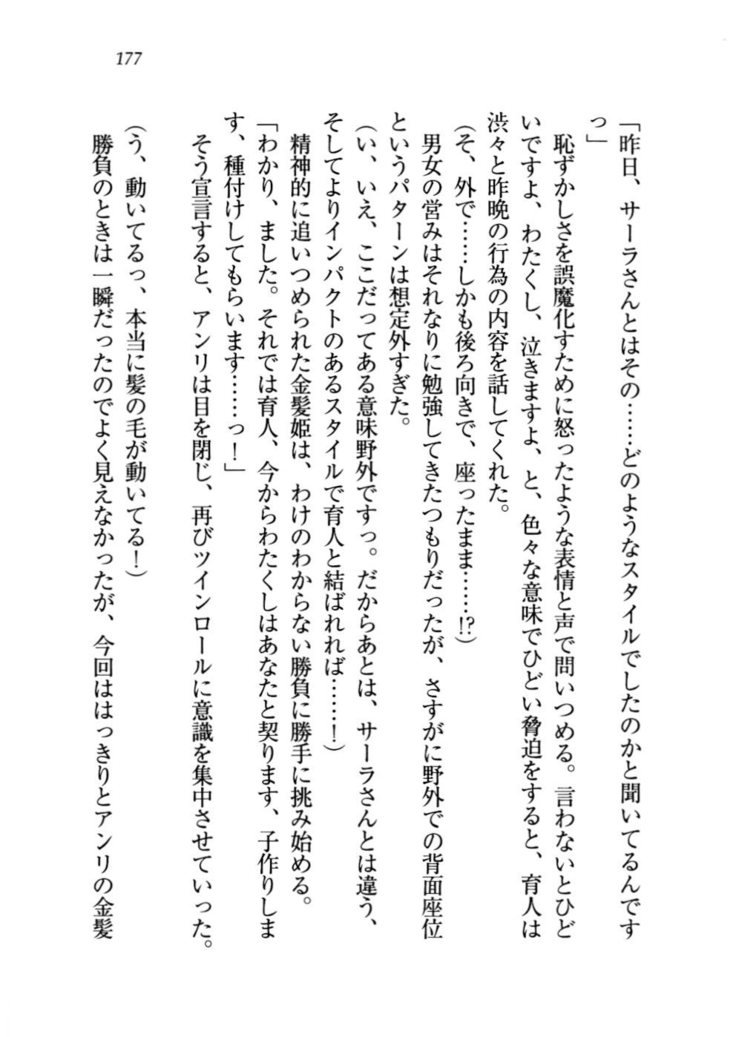 177
「昨日、サーラさんとはその……どのようなスタイルでしたのかと聞いてるんです
っ」
恥ずかしさを誤魔化すために怒ったような表情と声で問いつめる。言わないとひど
いですよ、わたくし、泣きますよ、と、色々な意味でひどい脅迫をすると、育人は
渋々と昨晩の行為の内容を話してくれた。
(そ、外で……しかも後ろ向きで、座ったまま……!?)
男女の営みはそれなりに勉強してきたつもりだったが、さすがに野外での背面座位
というパターンは想定外すぎた。
(い、いえ、ここだってある意味野外ですっ。だからあとは、サーラさんとは違う、
そしてよりインパクトのあるスタイルで育人と結ばれれば……!)
精神的に追いつめられた金髪姫は、わけのわからない勝負に勝手に挑み始める。
「わかり、ました。それでは育人、今からわたくしはあなたと契ります、子作りしま
す、種付けしてもらいます……っ!」
そう宣言すると、アンリは目を閉じ、再びツインロールに意識を集中させていった。
(う、動いてるっ、本当に髪の毛が動いてる!)
勝負のときは一瞬だったのでよく見えなかったが、今回ははっきりとアンリの金髪